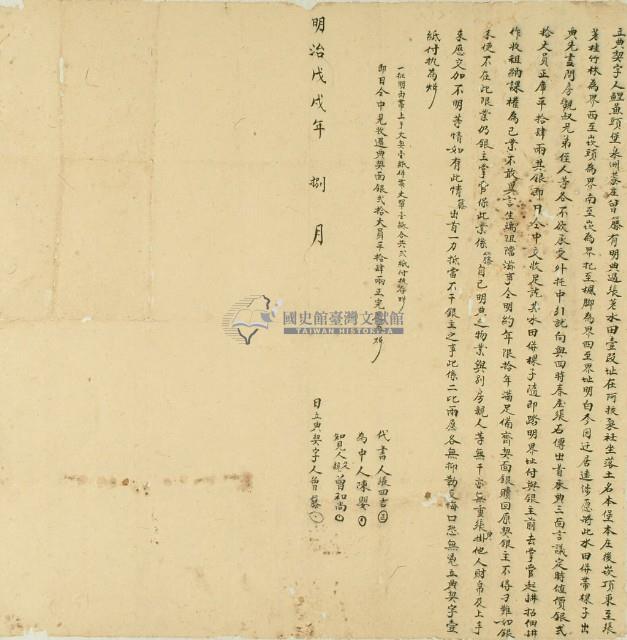 立典契字人鯉魚頭堡泉洲蓁庄曾藤有明典過張茗水田壹段址在阿拔泉社坐落土名本堡本庄後崁項東至張
茗桂竹林為界西至崁頭為界南至崁為界北至楓脚為界四至界址明白今因迁居遠涉愿將此水田併帶樣子出
典先盡問房親叔兄弟侄人等各不欲承受外托中引就向與四時春庄張石傳出首承典三面言議定時值價銀弍
拾大員正庫平拾肆兩其銀即日仝中交收足訖其水田併樣子隨即踏明界址付與銀主前去掌管起耕招佃耕
作收租納課權為己業不敢異言生端阻擋滋事今明約年限拾年滿足備齊契面銀贖回原契銀主不得刁難如銀
未便不在此限業仍銀主掌管保此業係藤自己明典之物業與別房親人等無干亦無重張典掛他人財帛及上手
來歷交加不明等情如有此情藤出首一力抵當不干銀主之事此係二比兩愿各無抑勒反悔口恐無憑立典契字壹
紙付执為炤
一批明內帶上手大契壹紙併業丈單壹紙合共弍紙付执為炤
即日仝中見收過典契面銀弍拾大員平拾肆兩正完足炤
代書人張四吉
為中人陳嬰
知見人叔父曾和尚
日立典契字人曾藤
明治戊戌年 捌 月
國史館臺灣文獻館
TAIWAN HISTORICA